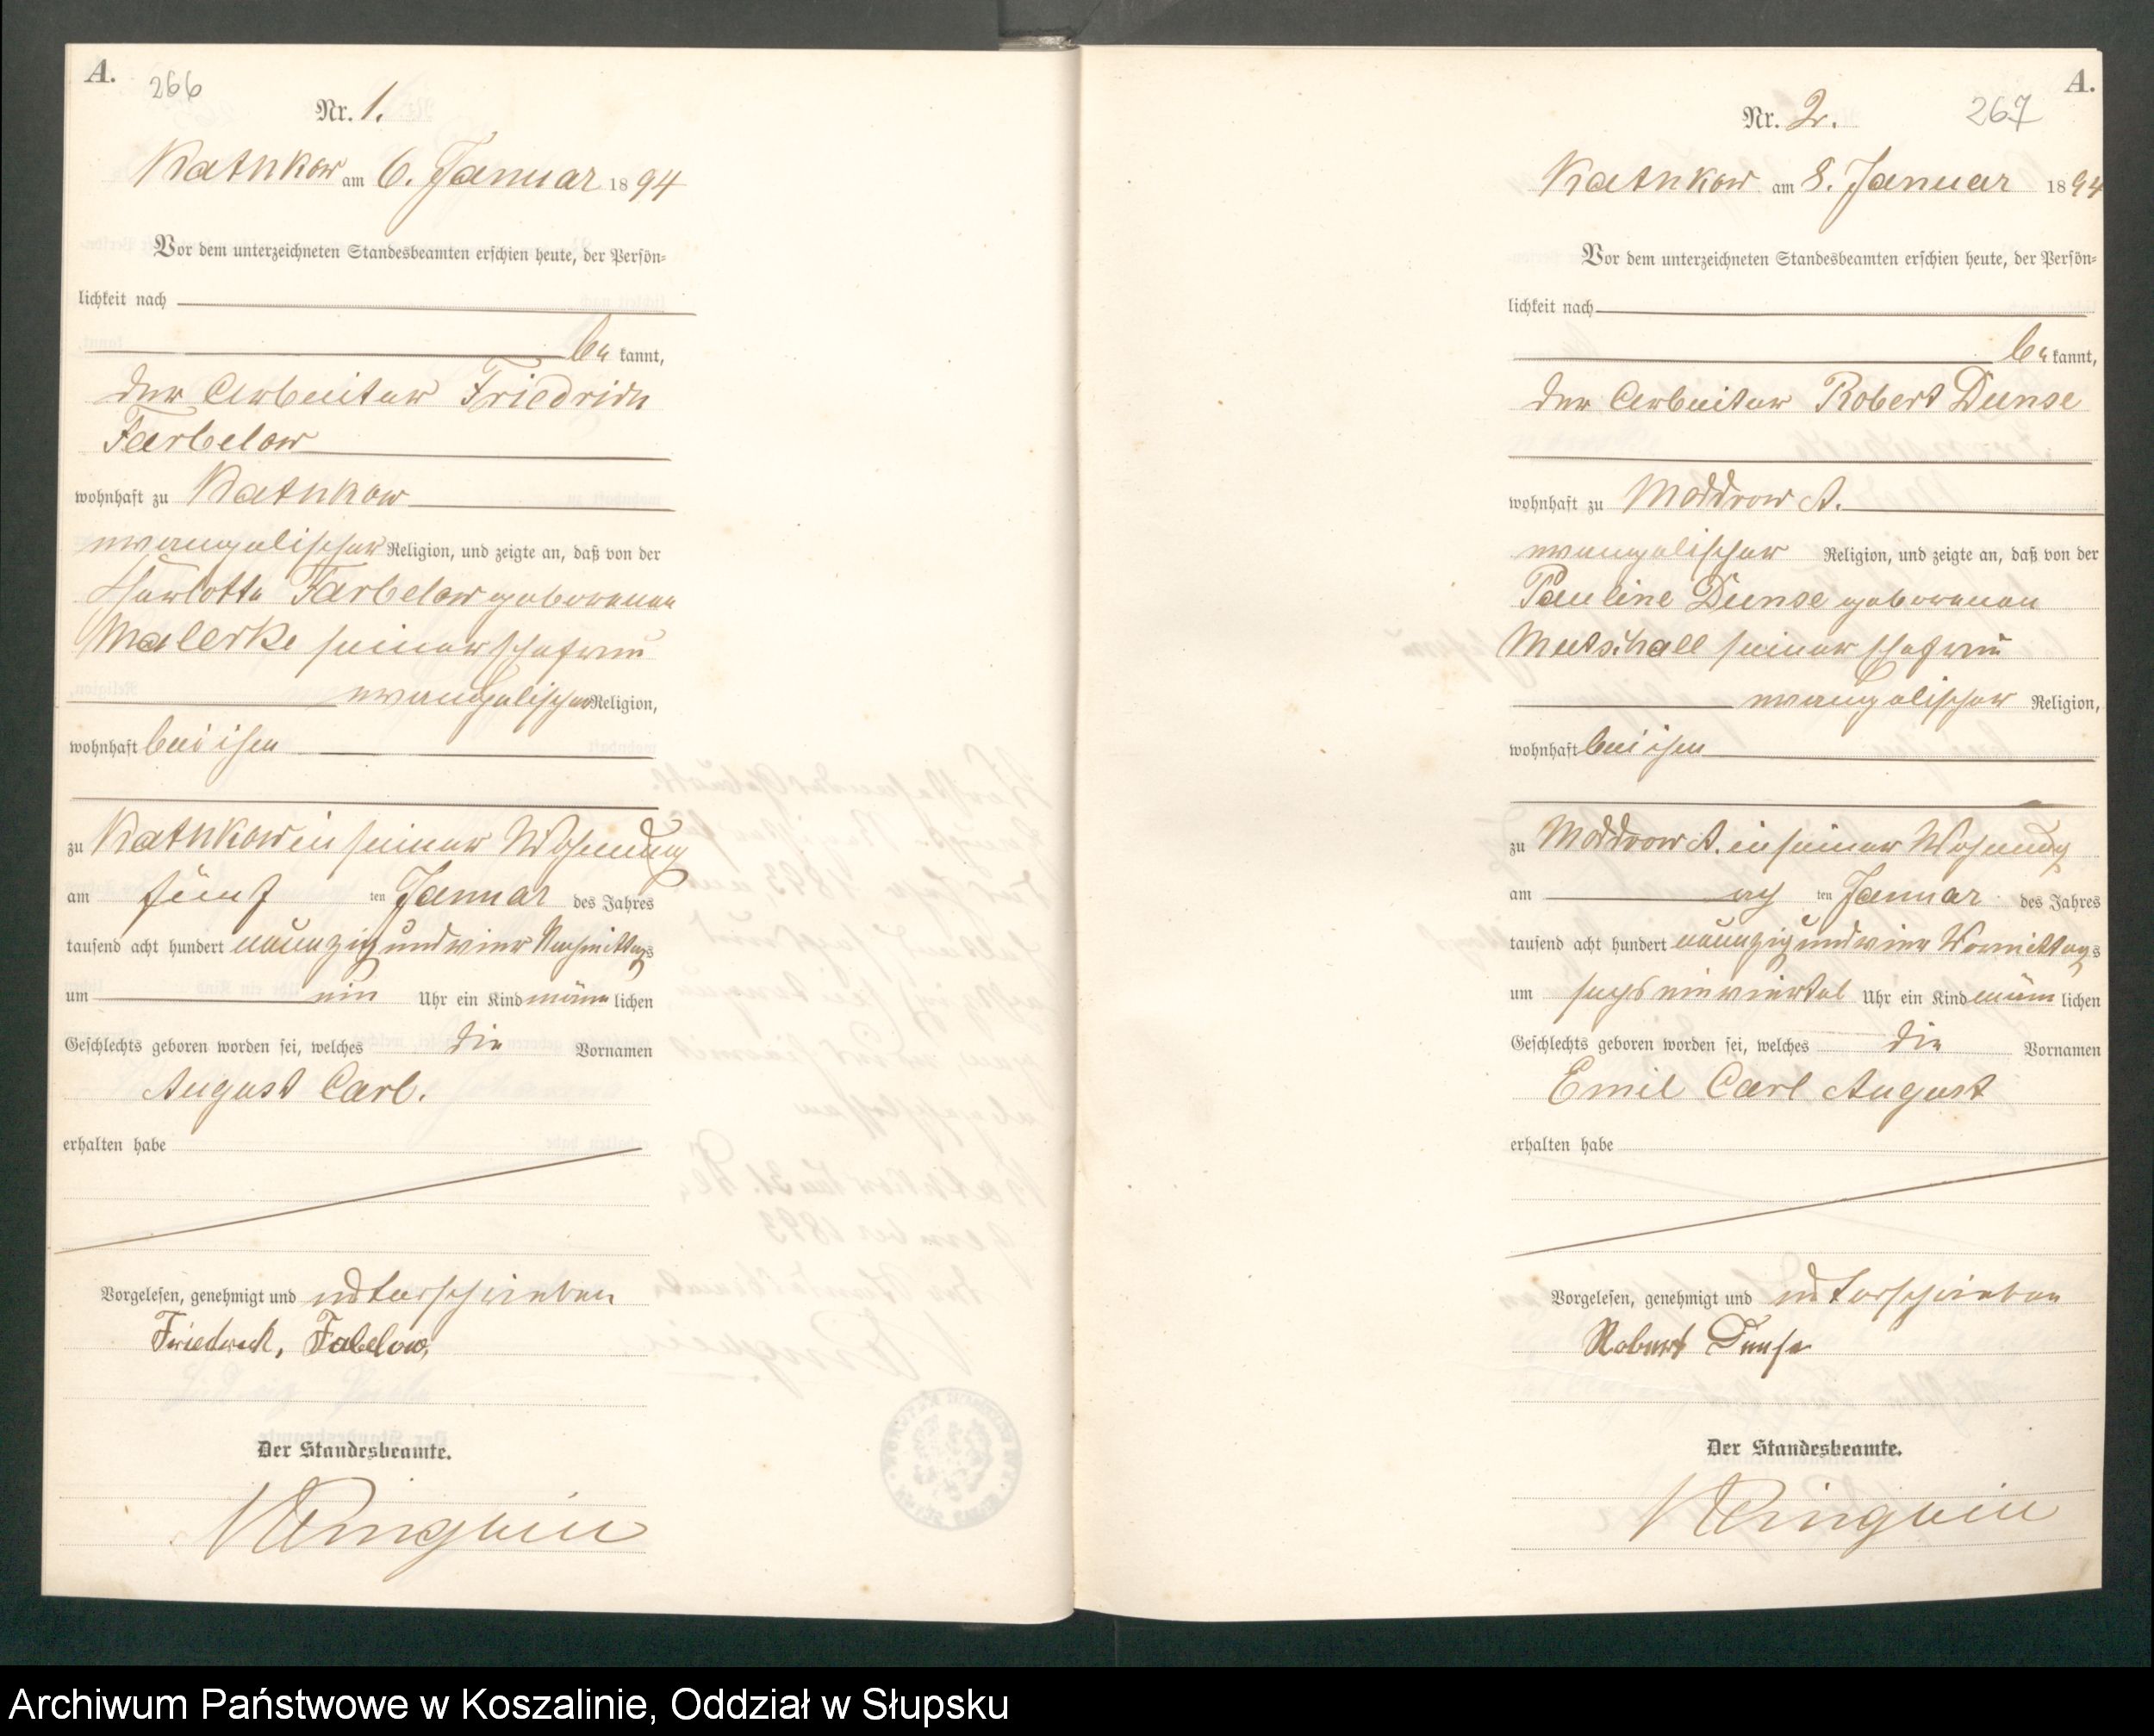 A.
266
Nr. 1.
Katnkow am 6. Januar 1894
Vor dem unterzeichneten Standesbeamten erschien heute, der Persön-
lichkeit nach
be kannt,
der Arbeiter Friedrich
Farbelow
wohnhaft zu Katnkow
evangelischer Religion, und zeigte an, daß von der
Charlotte Farbelow geborenen
Malerke seiner Ehefrau
evangelischer Religion,
wohnhaft bei ihm
zu Katnkow in seiner Wohnung
am fünf ten Januar des Jahres
tausend acht hundert neunzig und vier Nachmittags
um ein Uhr ein Kind männ lichen
Geschlechts geboren worden sei, welches die Vornamen
August Carl.
erhalten habe
Vorgelesen, genehmigt und unterschrieben
Friedrich, Fabelow,
Der Standesbeamte.
A.
267
Nr. 2.
Katnkow am 8. Januar 1894
Vor dem unterzeichneten Standesbeamten erschien heute, der Persön-
lichkeit nach
be kannt,
der Arbeiter Robert Dunse
wohnhaft zu Moddrow A.
evangelischer Religion, und zeigte an, daß von der
Pauline Dunse geborenen
Mutschall seiner Ehefrau
evangelischer Religion,
wohnhaft bei ihm
zu Moddrow A. in seiner Wohnung
am ach ten Januar des Jahres
tausend acht hundert neunzig und vier Vormittags
um sechs ein viertel Uhr ein Kind männ lichen
Geschlechts geboren worden sei, welches die Vornamen
Emil Carl August
erhalten habe
Vorgelesen, genehmigt und unterschrieben
Robert Dunse
Der Standesbeamte.
Archiwum Państwowe w Koszalinie, Oddział w Słupsku